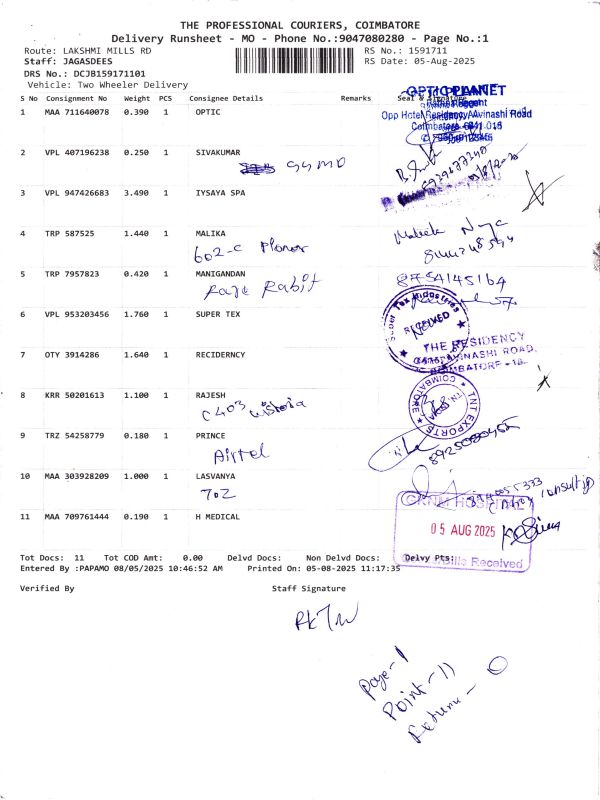 THE PROFESSIONAL COURIERS, COIMBATORE
Delivery Runsheet - MO - Phone No.:9047080280 - Page No.:1
Route: LAKSHMI MILLS RD RS No.: 1591711
Staff: JAGASDEES RS Date: 05-Aug-2025
DRS No.: DCJB159171101
Vehicle: Two Wheeler Delivery
S No Consignment No Weight PCS Consignee Details Remarks Seal & Signature
OPTIC PLANET
1 MAA 711640078 0.390 1 OPTIC
Opp Hotel Residency, Avinashi Road
Coimbatore - 641 018
2 VPL 407196238 0.250 1 SIVAKUMAR
GYMD
3 VPL 947426683 3.490 1 IYSAYA SPA
4 TRP 587525 1.440 1 MALIKA
602-C
5 TRP 7957823 0.420 1 MANIGANDAN 8754145164
Rage Rabit
6 VPL 953203456 1.760 1 SUPER TEX
Super Tex Industries
RECEIVED
7 OTY 3914286 1.640 1 RECIDERNCY
THE RESIDENCY
AVINASHI ROAD,
COIMBATORE - 18.
8 KRR 50201613 1.100 1 RAJESH
C403
TNT EXPORTS
COIMBATORE
9 TRZ 54258779 0.180 1 PRINCE
Airtel
8925080455
10 MAA 303928209 1.000 1 LASVANYA
702
11 MAA 709761444 0.190 1 H MEDICAL
HOSPITAL
05 AUG 2025
Bills Received
Tot Docs: 11 Tot COD Amt: 0.00 Delvd Docs: Non Delvd Docs: Delvy Pts:
Entered By :PAPAMO 08/05/2025 10:46:52 AM Printed On: 05-08-2025 11:17:35
Verified By Staff Signature
Page - 1
Point - 11
Return - 0